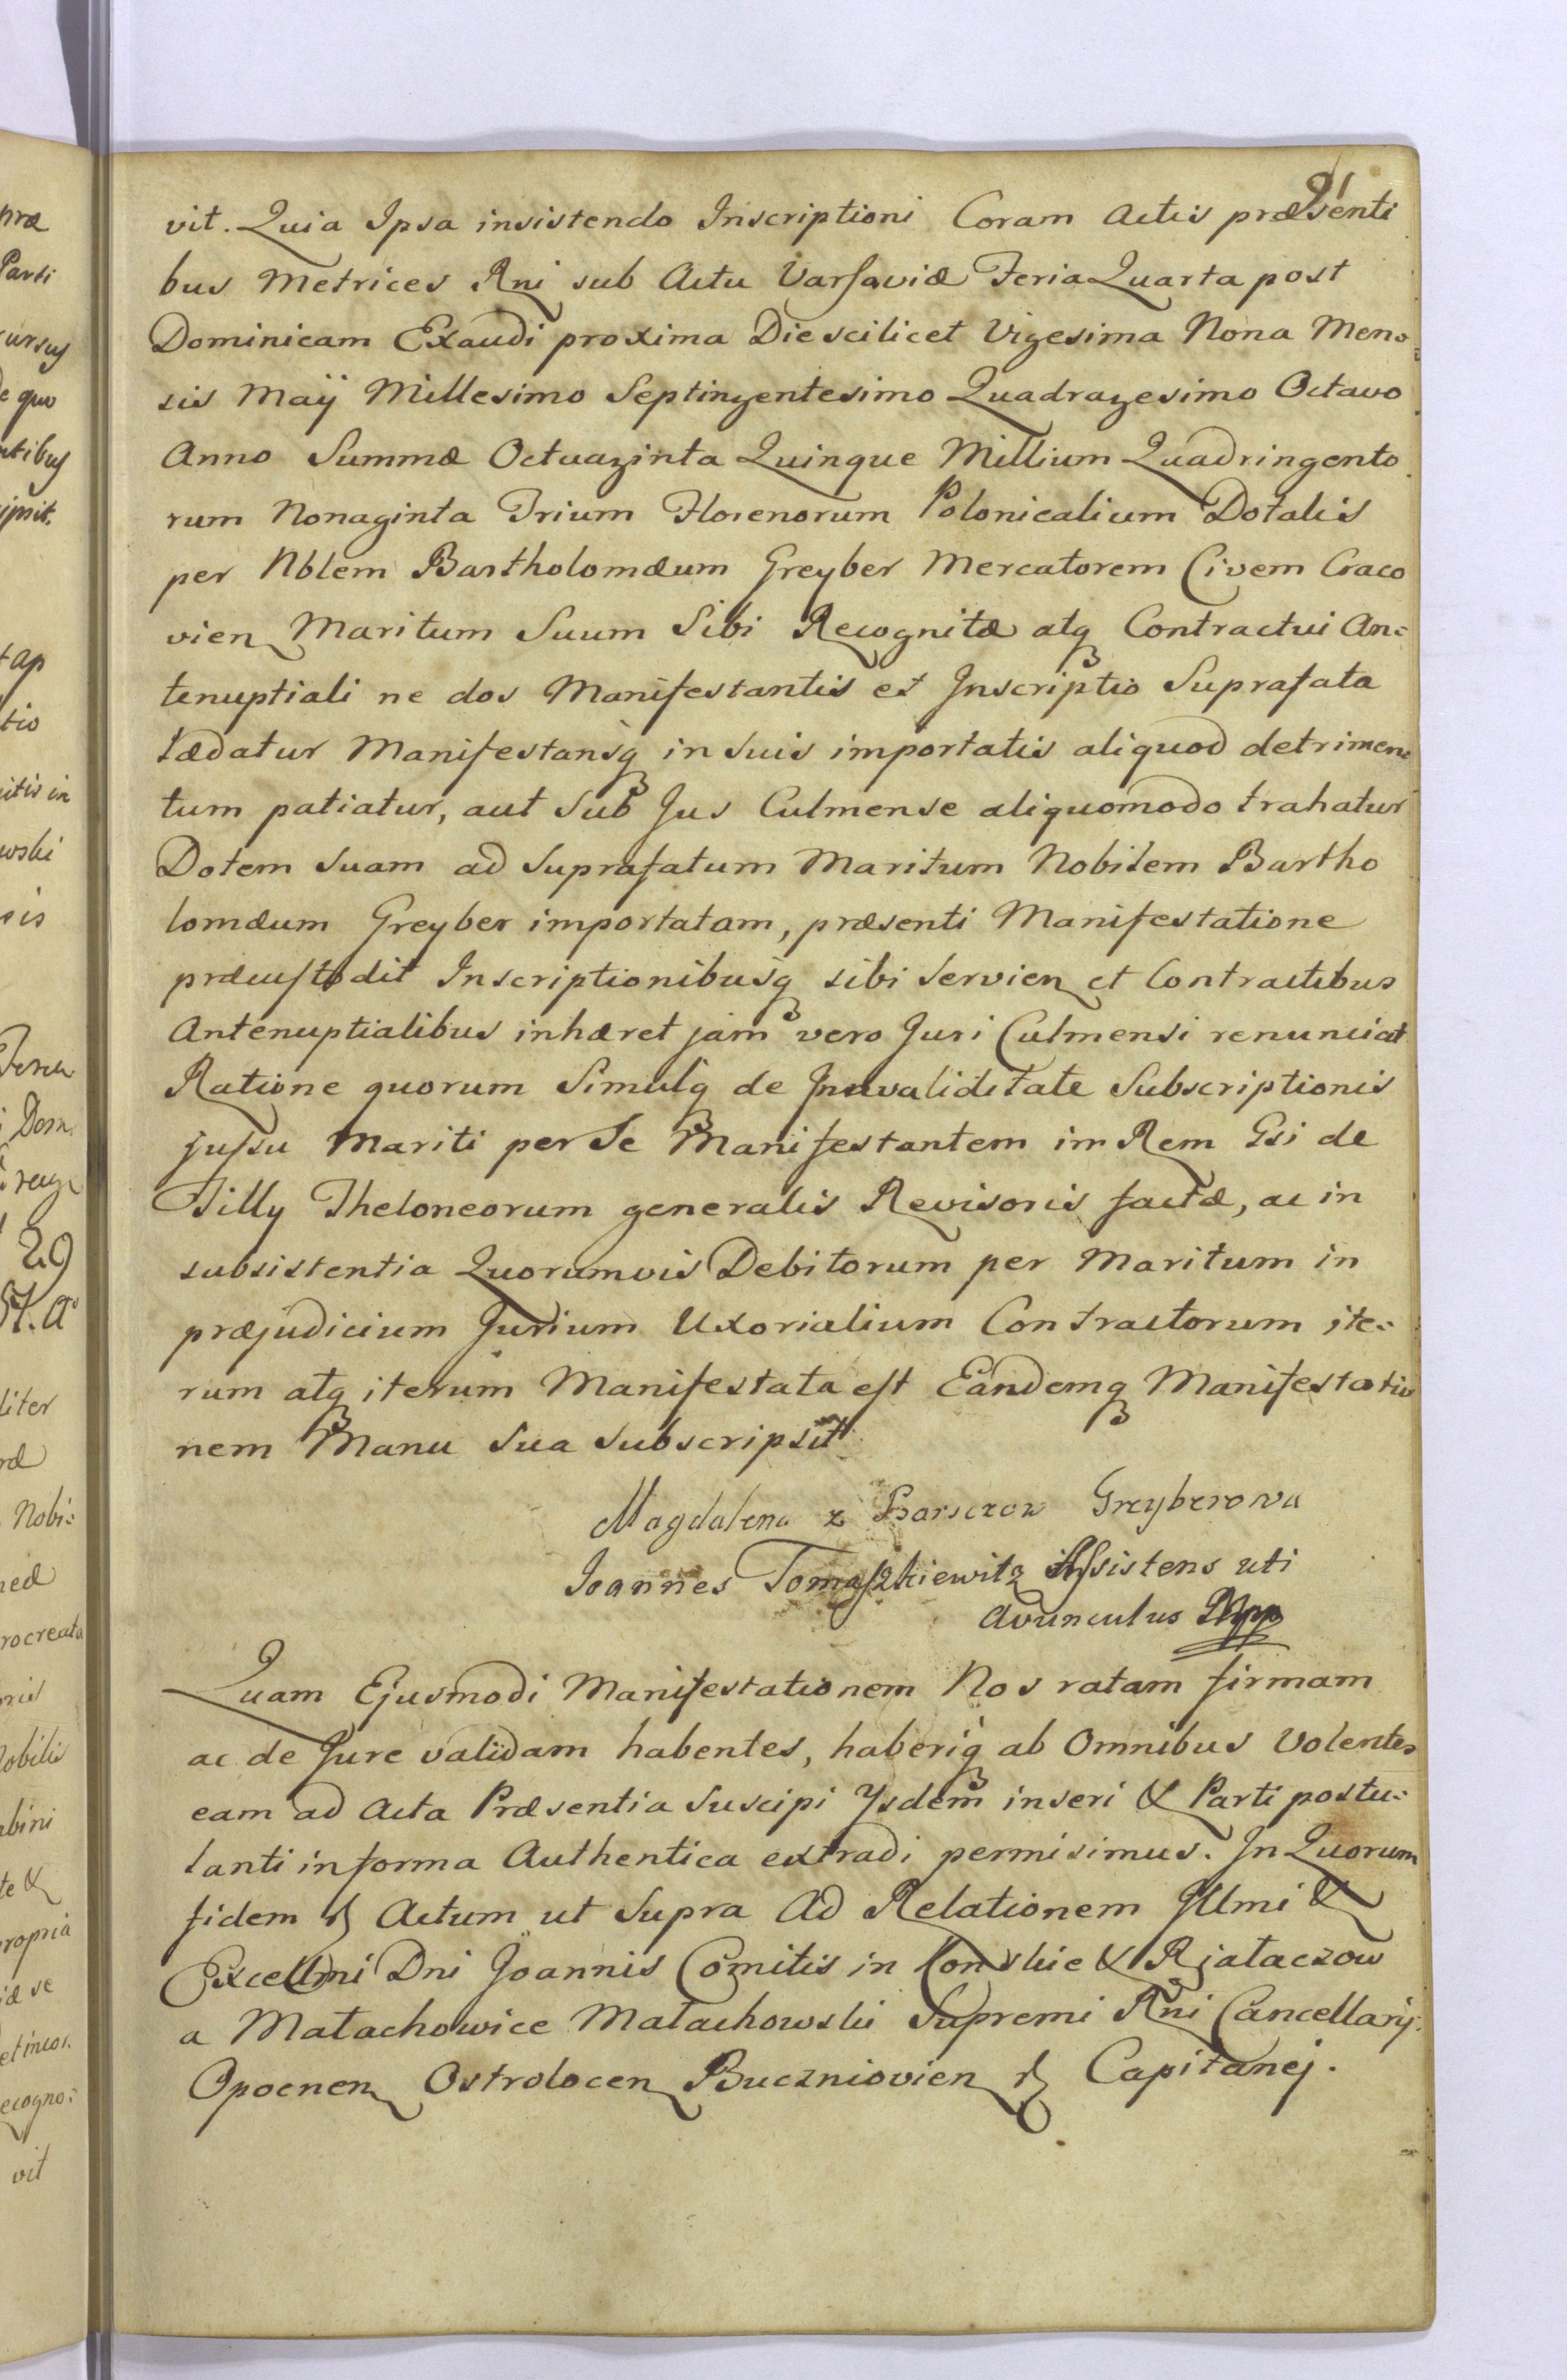 91
vit. Quia Ipsa insistendo Inscriptioni Coram Actis præsenti
bus Metrices Rni sub Actu Varsaviæ Feria Quarta post
Dominicam Exaudi proxima Die scilicet Vigesima Nona Men=
sis Maÿ Millesimo Septingentesimo Quadragesimo Octavo
Anno Summæ Octuaginta Quinque Millium Quadringento
rum Nonaginta Trium Florenorum Polonicalium Dotalis
per Nblem Bartholomæum Greyber Mercatorem Civem Craco
vien Maritum Suum Sibi Recognitæ atq Contractui An=
tenuptiali ne dos Manifestantis et Inscriptio Suprafata
lædatur Manifestansq in suis importatis aliquod detrimen=
tum patiatur, aut sub Jus Culmense aliquomodo trahatur
Dotem suam ad suprafatum Maritum Nobilem Bartho
lomæum Greyber importatam, præsenti Manifestatione
præcustodit Inscriptionibusq sibi servien et Contractibus
Antenuptialibus inhæret jam vero Juri Culmensi renunciat
Ratione quorum Simulq de Invaliditate Subscriptionis
jussu Mariti per Se Manifestantem im Rem Gsi de
Tilly Theloneorum generalis Revisoris factæ, ac in
subsistentia Quorumvis Debitorum per Maritum in
præjudicium Jurium Uxorialium Contractorum ite=
rum atq iterum Manifestata est Eandemq Manifestatio
nem Manu sua subscripsit
Magdalena z Barsczow Greyberowa
Joannes Tomaszkiewitz Assistens uti
Avunculus Mpp
Quam Ejusmodi Manifestationem Nos ratam firmam
ac de Jure validam habentes, haberiq ab Omnibus Volentes
eam ad Acta Præsentia Suscipi Ysdem inseri & Parti postu=
lanti in forma Authentica extradi permisimus. In Quorum
fidem & Actum ut supra Ad Relationem Illmi &
Excellmi Dni Joannis Comitis in Konskie & Rjałaczow
a Małachowice Małachowski Supremi Rni Cancellarij.
Opocnen Ostrolocen Buczniovien & Capitanej.